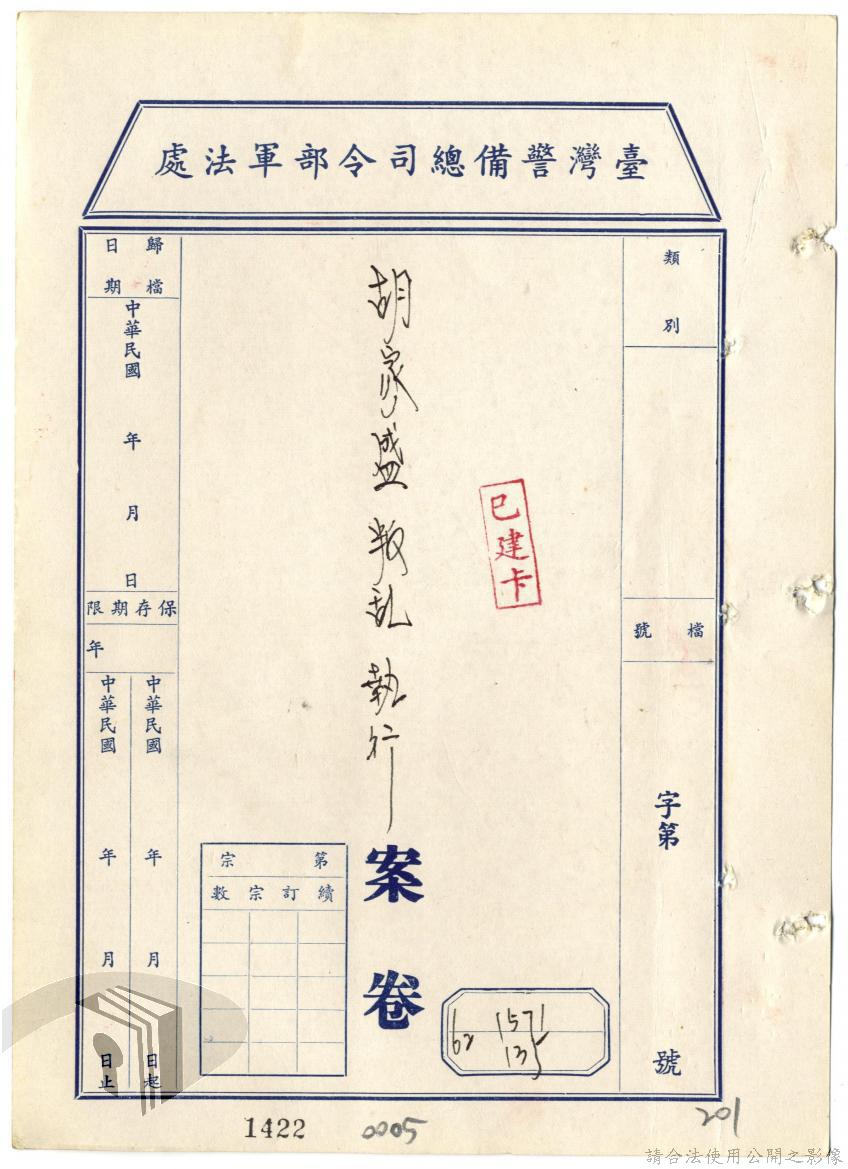 臺灣警備總司令部軍法處
類別
檔號
字第
號
胡家盛叛乱執行
案卷
已建卡
歸檔日期
中華民國 年 月 日
保存期限
年
中華民國 年 月 日起
中華民國 年 月 日止
第 宗
續訂宗數
1571
135
1422
0005
201
請合法使用公開之影像